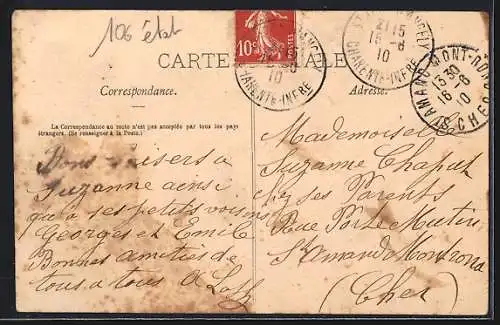 106 état
10c POSTES
CARTE POSTALE
ST JEAN D'ANGELY
21 15
15 -6
10
CHARENTE-INFRE
ST AMAND-MONT-ROND
13 30
16 -6
10
CHER
Correspondance.
Adresse.
La Correspondance au recto n'est pas acceptée par tous les pays
étrangers. (Se renseigner à la Poste.)
Bons baisers a
Suzanne ainsi
qu'a ses petits voisins
Georges et Emile
Bonnes amitiés de
tous a tous
Mademoiselle
Suzanne Chaput
chez ses Parents
Rue Porte Mutin
St Amand Montrond
(Cher)